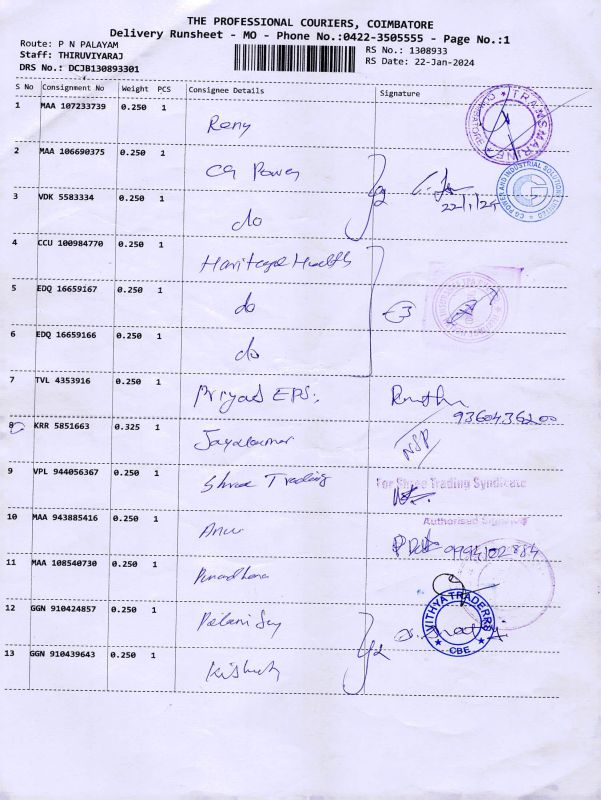 THE PROFESSIONAL COURIERS, COIMBATORE
Delivery Runsheet - MO - Phone No.:0422-3505555 - Page No.:1
Route: P N PALAYAM
RS No.: 1308933
Staff: THIRUVIYARAJ
RS Date: 22-Jan-2024
DRS No.: DCJB130893301
S No Consignment No Weight PCS Consignee Details Signature
1 MAA 107233739 0.250 1
TRANSMARINE
2 MAA 106690375 0.250 1 CG Power
CG POWER AND INDUSTRIAL SOLUTIONS LIMITED
3 VDK 5583334 0.250 1 do
4 CCU 100984770 0.250 1 Health
5 EDQ 16659167 0.250 1 do
6 EDQ 16659166 0.250 1 do
7 TVL 4353916 0.250 1 EPS
9360436200
8 KRR 5851663 0.325 1 Jayakumar
NSP
9 VPL 944056367 0.250 1 Shree Trading
For Shree Trading Syndicate
Authorised
10 MAA 943885416 0.250 1
9994102884
11 MAA 108540730 0.250 1
VITHYA TRADERRS
CBE
12 GGN 910424857 0.250 1
13 GGN 910439643 0.250 1